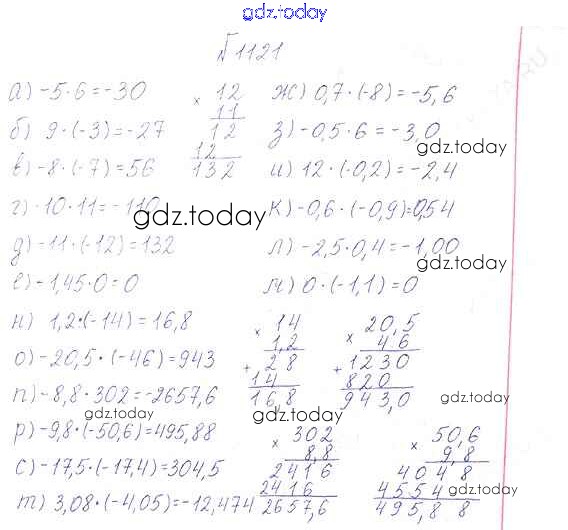 gdz.today
№1121
а) -5·6=-30
б) 9·(-3)=-27
в) -8·(-7)=56
г) -10·11=-110
д) -11·(-12)=132
е) -1,45·0=0
× 12
11
12
12
132
ж) 0,7·(-8)=-5,6
з) -0,5·6=-3,0
gdz.today
и) 12·(-0,2)=-2,4
gdz.today
к) -0,6·(-0,9)=0,54
л) -2,5·0,4=-1,00
gdz.today
м) 0·(-1,1)=0
н) 1,2·(-14)=16,8
о) -20,5·(-46)=943
п) -8,8·302=-2657,6
gdz.today
р) -9,8·(-50,6)=495,88
с) -17,5·(-17,4)=304,5
т) 3,08·(-4,05)=-12,474
× 14
1,2
+ 28
14
16,8
× 20,5
46
+ 1230
820
943,0
gdz.today
gdz.today
× 302
8,8
2416
2416
2657,6
× 50,6
9,8
4048
4554
495,88
gdz.today